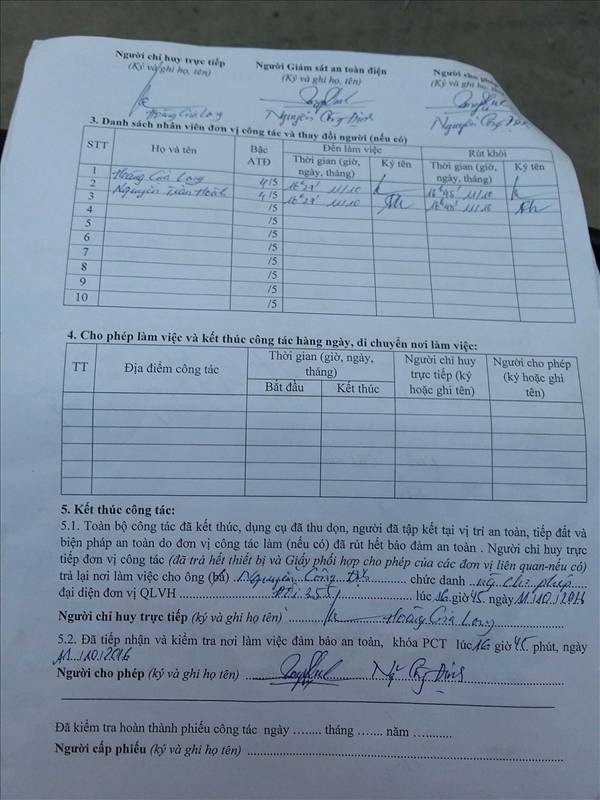 Người chỉ huy trực tiếp Người Giám sát an toàn điện Người cho phép
(Ký và ghi họ, tên) (Ký và ghi họ, tên) (Ký và ghi họ, tên)
Hoàng Gia Long Nguyễn Công Định Nguyễn Công Định
3. Danh sách nhân viên đơn vị công tác và thay đổi người (nếu có)
STT Họ và tên Bậc ATĐ Đến làm việc Rút khỏi
Thời gian (giờ, ngày, tháng) Ký tên Thời gian (giờ, ngày, tháng) Ký tên
1 Hoàng Gia Long 4/5 11/10 11/10
2 Nguyễn 4/5 11/10 11/10
3 /5
4 /5
5 /5
6 /5
7 /5
8 /5
9 /5
10 /5
4. Cho phép làm việc và kết thúc công tác hàng ngày, di chuyển nơi làm việc:
TT Địa điểm công tác Thời gian (giờ, ngày, tháng) Người chỉ huy trực tiếp (ký hoặc ghi tên) Người cho phép (ký hoặc ghi tên)
Bắt đầu Kết thúc
5. Kết thúc công tác:
5.1. Toàn bộ công tác đã kết thúc, dụng cụ đã thu dọn, người đã tập kết tại vị trí an toàn, tiếp đất và
biện pháp an toàn do đơn vị công tác làm (nếu có) đã rút hết bảo đảm an toàn . Người chỉ huy trực
tiếp đơn vị công tác (đã trả hết thiết bị và Giấy phối hợp cho phép của các đơn vị liên quan-nếu có)
trả lại nơi làm việc cho ông (bà) Nguyễn Công Định chức danh ng. cho phép
đại diện đơn vị QLVH lúc 16 giờ 45 ngày 11/10/2016
Người chỉ huy trực tiếp (ký và ghi họ tên) Hoàng Gia Long
5.2. Đã tiếp nhận và kiểm tra nơi làm việc đảm bảo an toàn, khóa PCT lúc 16 giờ 45 phút, ngày
11/10/2016
Người cho phép (ký và ghi họ tên) Ng Công Định
Đã kiểm tra hoàn thành phiếu công tác ngày ........ tháng ....... năm ..........
Người cấp phiếu (ký và ghi họ tên)